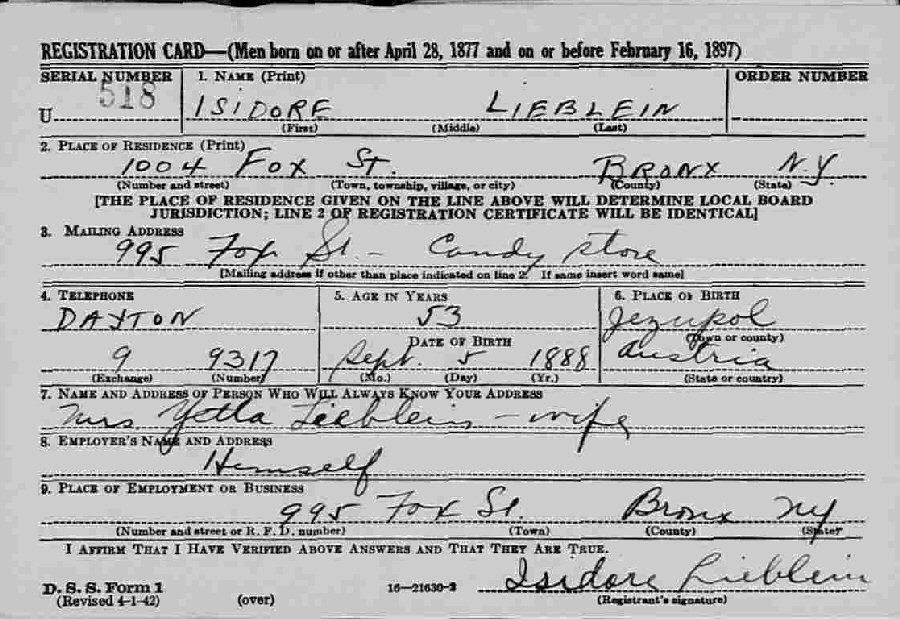 REGISTRATION CARD—(Men born on or after April 28, 1877 and on or before February 16, 1897)
SERIAL NUMBER 1. NAME (Print) ORDER NUMBER
U 518 ISIDORE LIEBLEIN
(First) (Middle) (Last)
2. PLACE OF RESIDENCE (Print)
1004 FOX ST. BRONX N.Y.
(Number and street) (Town, township, village, or city) (County) (State)
[THE PLACE OF RESIDENCE GIVEN ON THE LINE ABOVE WILL DETERMINE LOCAL BOARD
JURISDICTION; LINE 2 OF REGISTRATION CERTIFICATE WILL BE IDENTICAL]
3. MAILING ADDRESS
995 Fox St. - Candy store
[Mailing address if other than place indicated on line 2. If same insert word same]
4. TELEPHONE 5. AGE IN YEARS 6. PLACE OF BIRTH
DAYTON 53 Jezupol
DATE OF BIRTH (Town or county)
9 9317 Sept. 5 1888 Austria
(Exchange) (Number) (Mo.) (Day) (Yr.) (State or country)
7. NAME AND ADDRESS OF PERSON WHO WILL ALWAYS KNOW YOUR ADDRESS
Mrs Yetta Lieblein - wife
8. EMPLOYER'S NAME AND ADDRESS
Himself
9. PLACE OF EMPLOYMENT OR BUSINESS
995 Fox St. Bronx NY
(Number and street or R. F. D. number) (Town) (County) (State)
I AFFIRM THAT I HAVE VERIFIED ABOVE ANSWERS AND THAT THEY ARE TRUE.
Isidore Lieblein
D. S. S. Form 1 16—21630-2
(Revised 4-1-42) (over) (Registrant's signature)